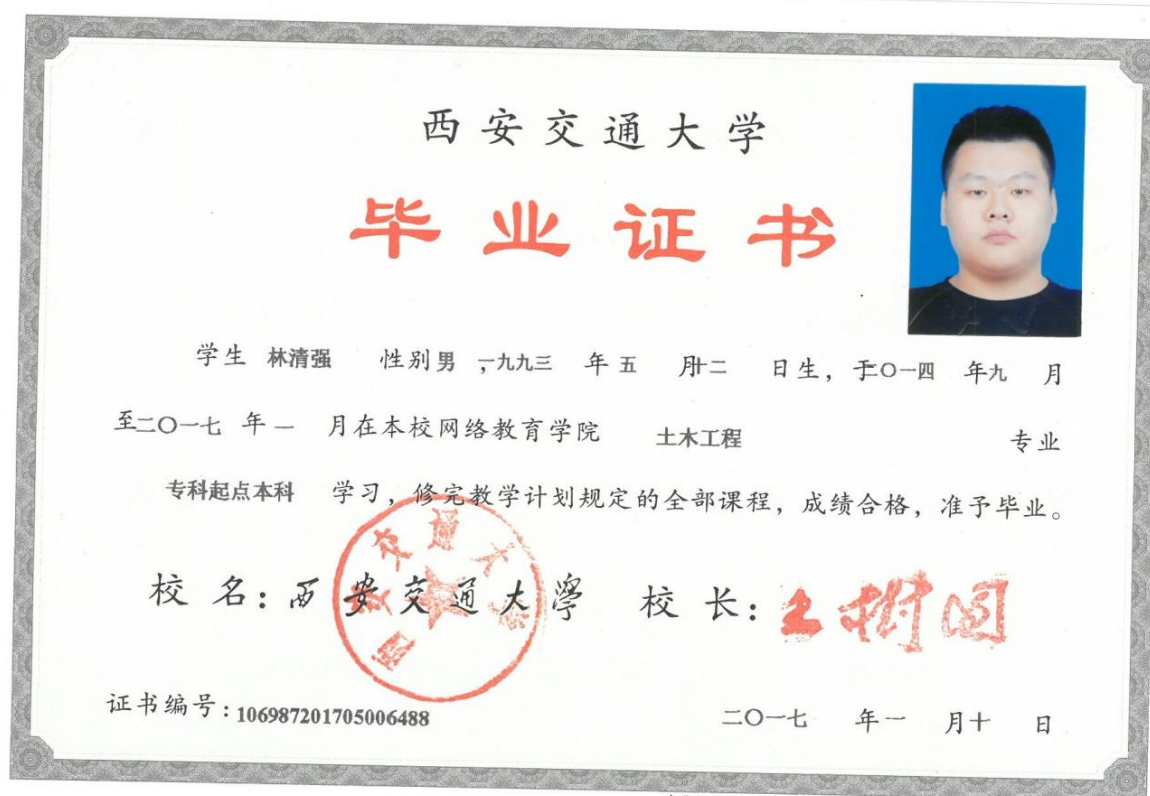 西安交通大学
毕业证书
学生 林清强 性别男，一九九三 年五 月十二 日生，于二〇一四 年九 月
至二〇一七 年一 月在本校网络教育学院 土木工程 专业
专科起点本科 学习，修完教学计划规定的全部课程，成绩合格，准予毕业。
校名：西安交通大学 校长：王树国
西安交通大学
证书编号：106987201705006488
二〇一七 年一 月十 日